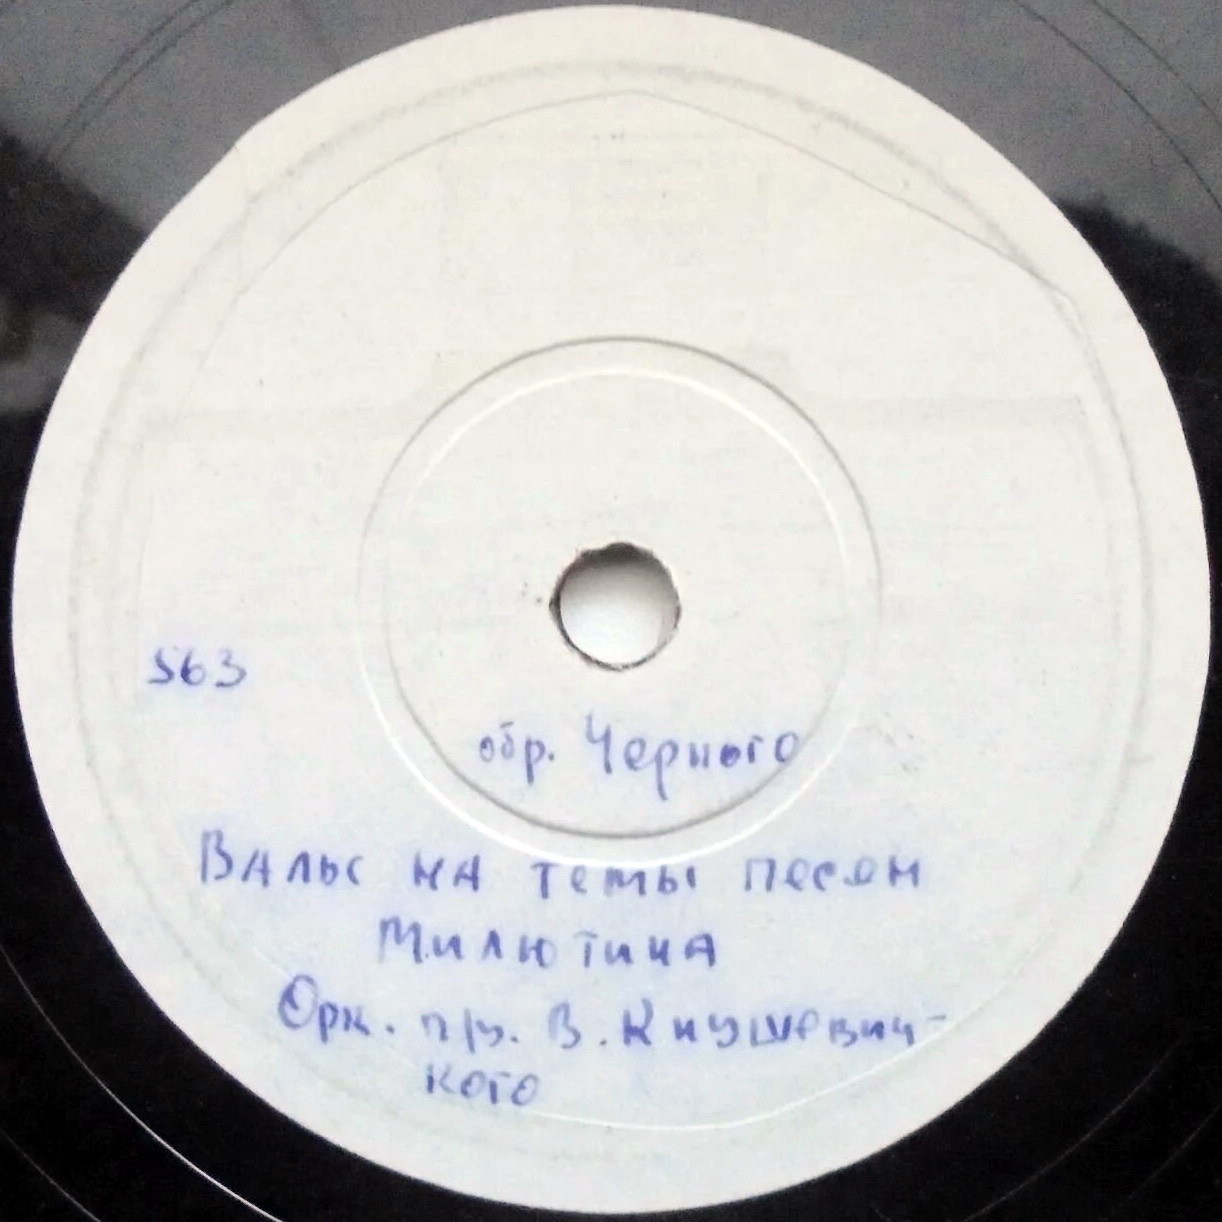 563
обр. Черного
Вальс на темы песен
Милютина
Орк. п/у. В. Кнушевиц-
кого